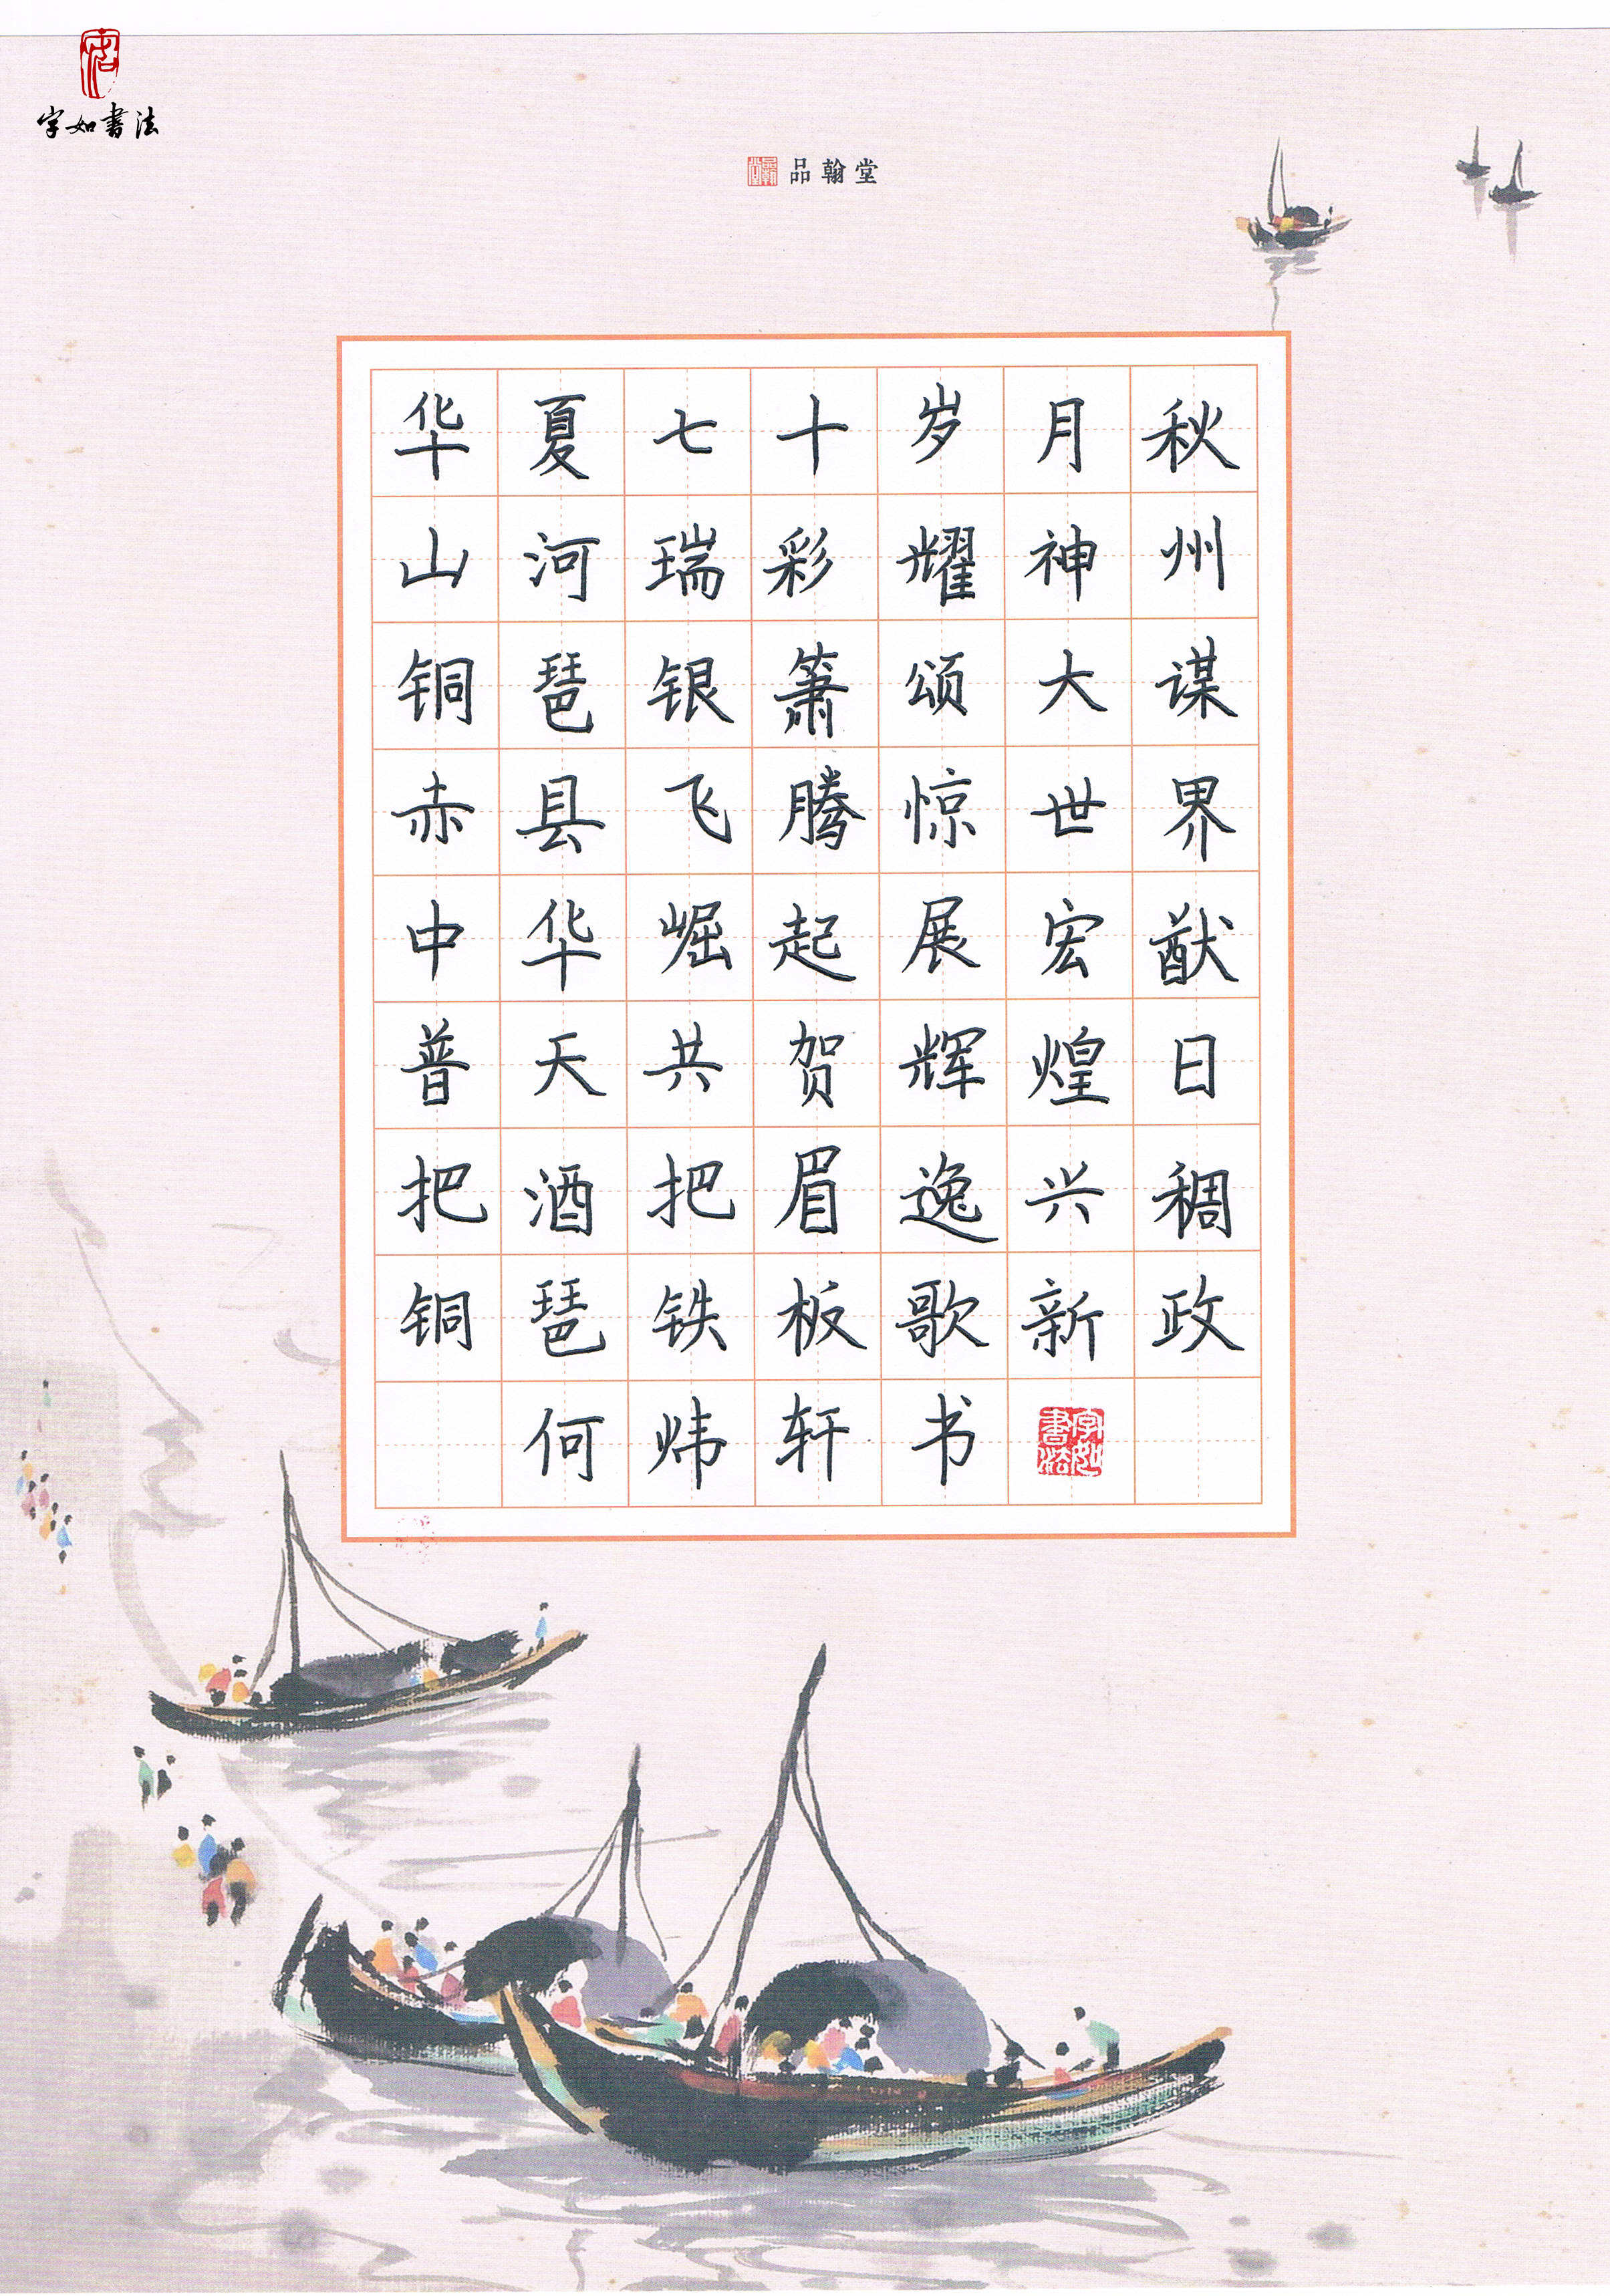 字如書法
品翰堂
华夏七十岁月秋
山河瑞彩耀神州
铜琶银箫颂大谋
赤县飞腾惊世界
中华崛起展宏猷
普天共贺辉煌日
把酒把眉逸兴稠
铜琶铁板歌新政
何炜轩书
字如書法